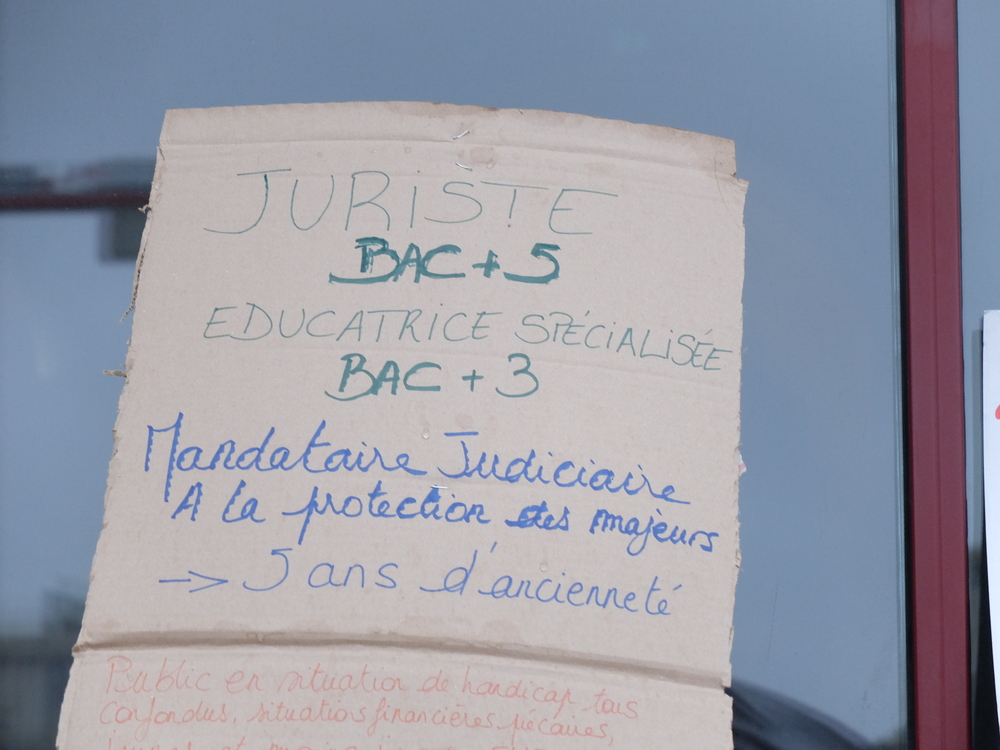 JURISTE
BAC + 5
EDUCATRICE SPÉCIALISÉE
BAC + 3
Mandataire Judiciaire
A la protection des majeurs
-> 5 ans d'ancienneté
Public en situation de handicap tous
confondus, situations financières précaires,